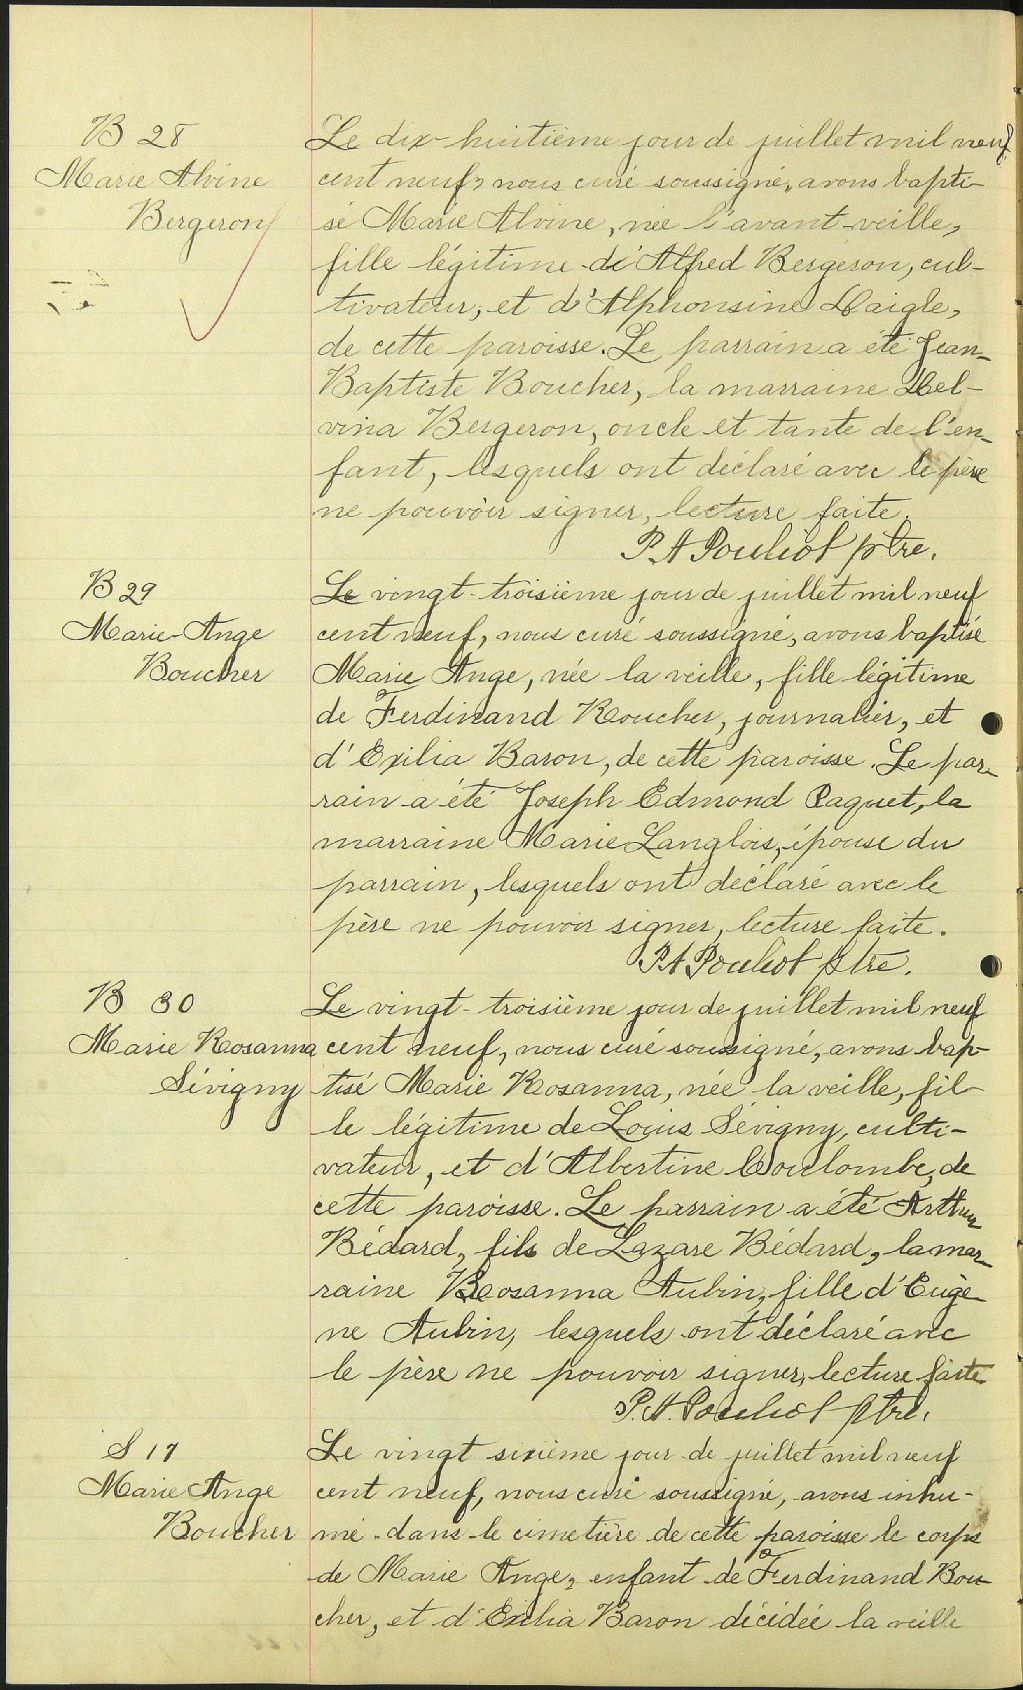 B 28
Marie Alvine
Bergeron
Le dix-huitième jour de juillet mil neuf
cent neuf, nous curé soussigné, avons bapti-
sé Marie Alvine, née l'avant-veille,
fille légitime d'Alfred Bergeron, cul-
tivateur, et d'Alphonsine Daigle,
de cette paroisse. Le parrain a été Jean-
Baptiste Boucher, la marraine Del-
vina Bergeron, oncle et tante de l'en-
fant, lesquels ont déclaré avec le père
ne pouvoir signer, lecture faite.
P. A Pouliot ptre.
B 29
Marie-Ange
Boucher
Le vingt-troisième jour de juillet mil neuf
cent neuf, nous curé soussigné, avons baptisé
Marie Ange, née la veille, fille légitime
de Ferdinand Boucher, journalier, et
d'Exilia Baron, de cette paroisse. Le par-
rain a été Joseph Edmond Paquet, la
marraine Marie Langlois, épouse du
parrain, lesquels ont déclaré avec le
père ne pouvoir signer, lecture faite.
P. A Pouliot ptre.
B 30
Marie Rosanna
Sévigny
Le vingt-troisième jour de juillet mil neuf
cent neuf, nous curé soussigné, avons bap-
tisé Marie Rosanna, née la veille, fil-
le légitime de Louis Sévigny, culti-
vateur, et d'Albertine Coulombe, de
cette paroisse. Le parrain a été Arthur
Bédard, fils de Lazare Bédard, la mar-
raine Rosanna Aubin, fille d'Eugè-
ne Aubin, lesquels ont déclaré avec
le père ne pouvoir signer, lecture faite
P. A. Pouliot ptre.
S 17
Marie Ange
Boucher
Le vingt sixième jour de juillet mil neuf
cent neuf, nous curé soussigné, avons inhu-
mé dans le cimetière de cette paroisse le corps
de Marie Ange, enfant de Ferdinand Bou-
cher, et d'Exilia Baron décédée la veille